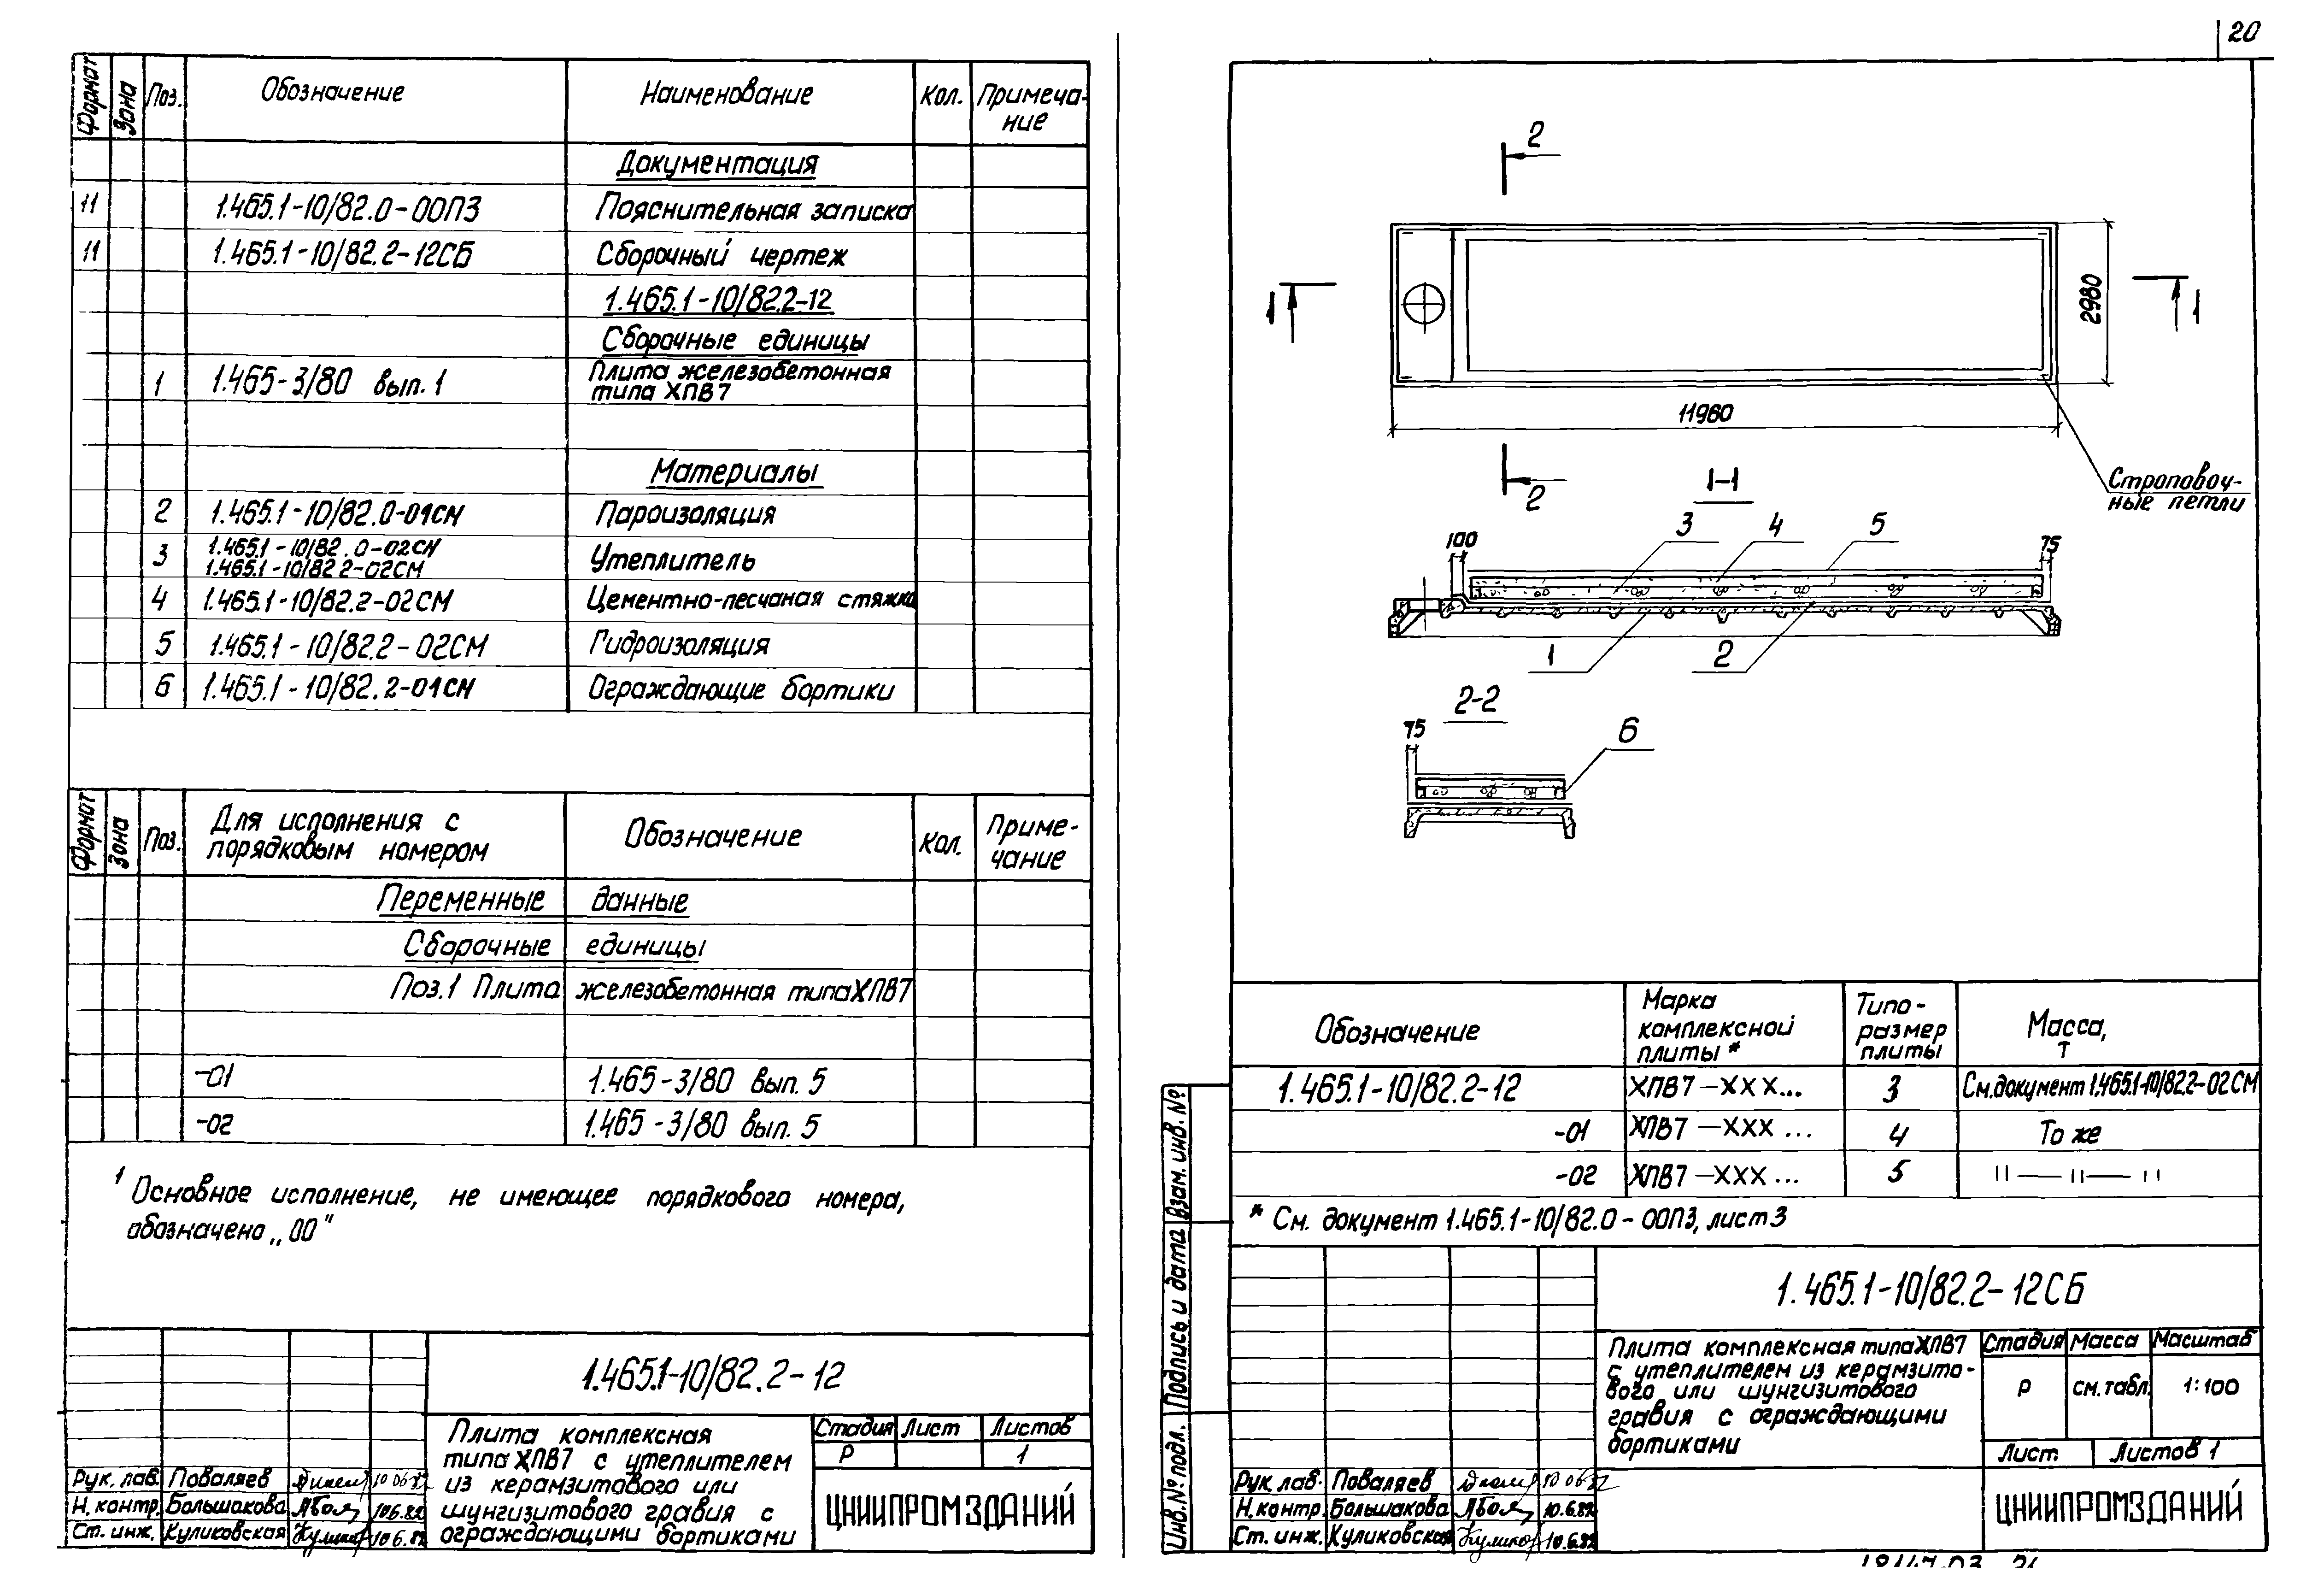 20
Формат Зона Поз. Обозначение Наименование Кол. Примеча-
ние
Документация
11 1.465.1-10/82.0-00ПЗ Пояснительная записка
11 1.465.1-10/82.2-12СБ Сборочный чертеж
1.465.1-10/82.2-12
Сборочные единицы
1 1.465-3/80 вып. 1 Плита железобетонная
типа ХПВ7
Материалы
2 1.465.1-10/82.0-01СМ Пароизоляция
3 1.465.1-10/82.0-02СМ Утеплитель
1.465.1-10/82 2-02СМ
4 1.465.1-10/82.2-02СМ Цементно-песчаная стяжка
5 1.465.1-10/82.2-02СМ Гидроизоляция
6 1.465.1-10/82.2-01СМ Ограждающие бортики
Формат Зона Поз. Для исполнения с
порядковым номером Обозначение Кол. Приме-
чание
Переменные данные
Сборочные единицы
Поз.1 Плита железобетонная типа ХПВ7
-01 1.465-3/80 вып. 5
-02 1.465-3/80 вып. 5
1 Основное исполнение, не имеющее порядкового номера,
обозначено „00"
1.465.1-10/82.2-12
Плита комплексная
типа ХПВ7 с утеплителем
из керамзитового или
шунгизитового гравия с
ограждающими бортиками
Стадия Лист Листов
Р 1
ЦНИИПРОМЗДАНИЙ
Рук. лав. Поваляев 10 06 82
Н. контр. Большакова 10.6.82
Ст. инж. Куликовская 10 6.82
2
1 1
2980
11960
2
Строповоч-
ные петли
1-1
100 3 4 5 75
1 2
2-2
75 6
Обозначение Марка
комплексной
плиты * Типо-
размер
плиты Масса,
т
1.465.1-10/82.2-12 ХПВ7-ХХХ... 3 См.документ 1.465.1-10/82.2-02СМ
-01 ХПВ7-ХХХ... 4 То же
-02 ХПВ7-ХХХ... 5 II — II — II
* См. документ 1.465.1-10/82.0-00ПЗ, лист 3
Инв.№ подл. Подпись и дата Взам. инв. №
1.465.1-10/82.2-12СБ
Плита комплексная типа ХПВ7
с утеплителем из керамзито-
вого или шунгизитового
гравия с ограждающими
бортиками
Стадия Масса Масштаб
Р см.табл. 1:100
Лист Листов 1
ЦНИИПРОМЗДАНИЙ
Рук лав. Поваляев 10 06 82
Н.контр. Большакова 10.6.82
Ст. инж. Куликовская 10.6.82